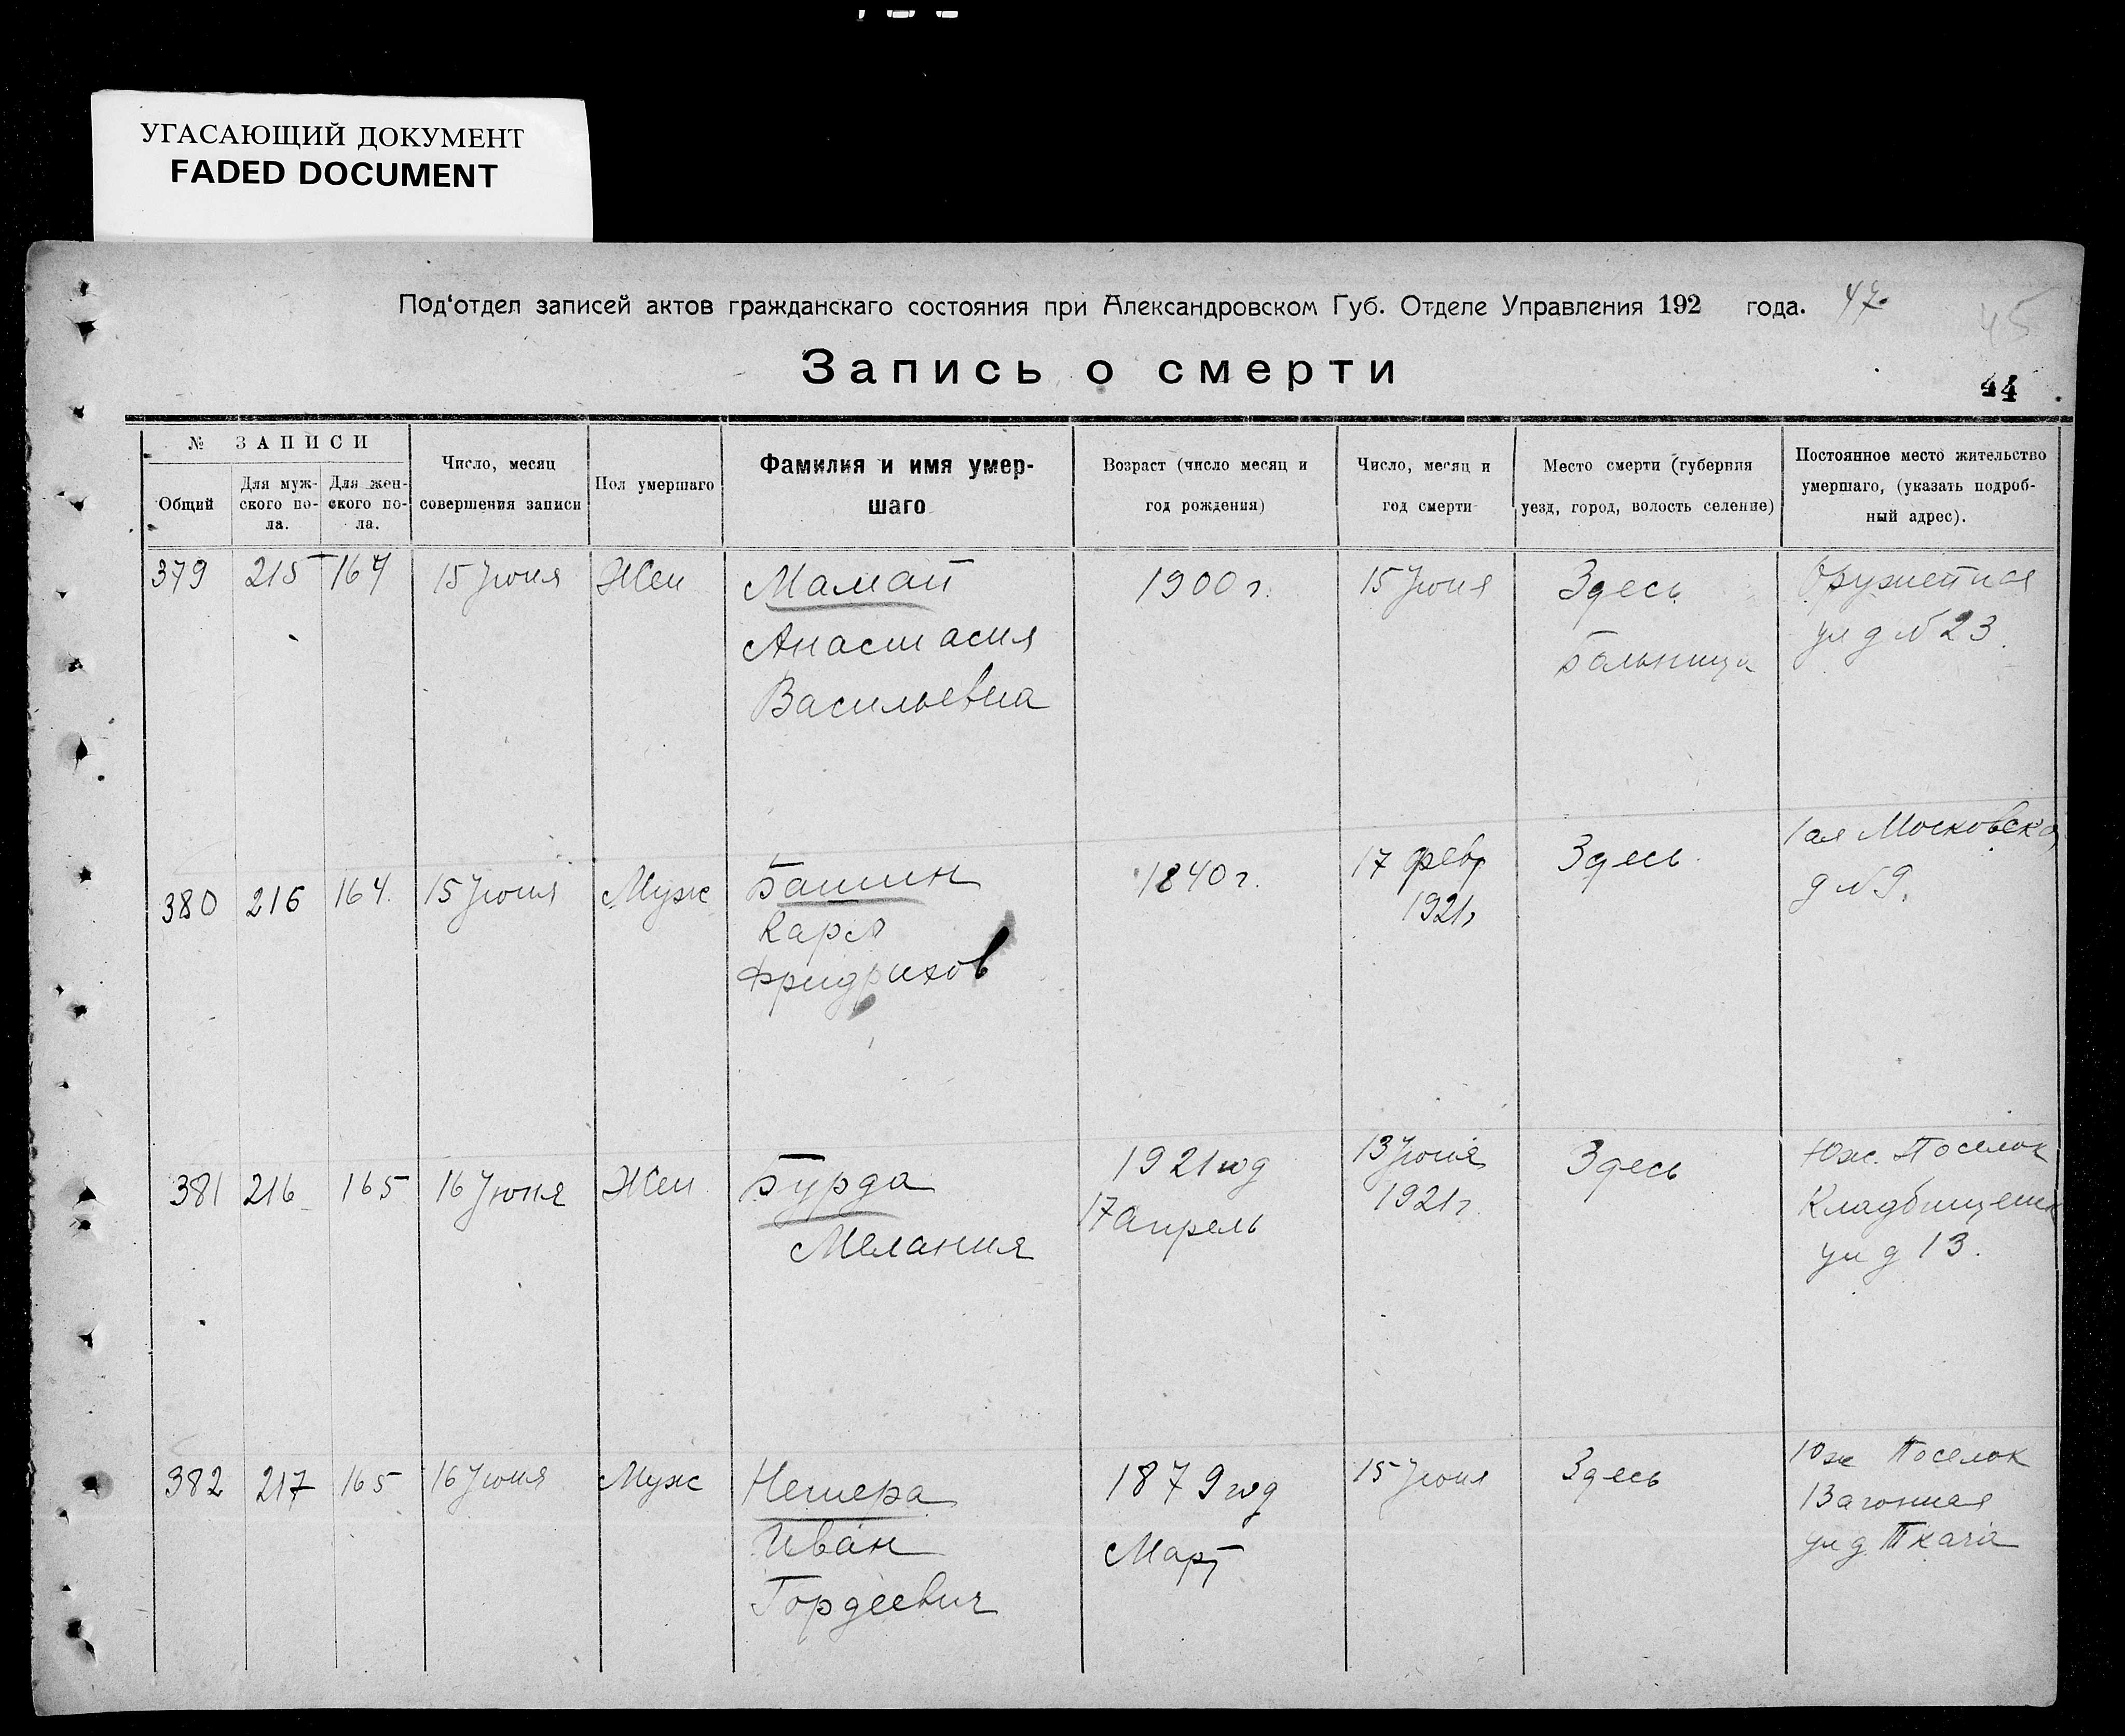 УГАСАЮЩИЙ ДОКУМЕНТ
FADED DOCUMENT
Под‘отдел записей актов гражданскаго состояния при Александровском Губ. Отделе Управления 192 года. 47
45
Запись о смерти
44
№ ЗАПИСИ
Общий
Для муж-
ского по-
ла.
Для жен-
ского по-
ла.
Число, месяц
совершения записи
Пол умершаго
Фамилия и имя умер-
шаго
Возраст (число месяц и
год рождения)
Число, месяц и
год смерти
Место смерти (губерния
уезд, город, волость селение)
Постоянное место жительство
умершаго, (указать подроб-
ный адрес).
379 215 164 15 Июня Жен
Мамай
Анастасия
Васильевна
1900 г.
15 Июня
Здесь
Больница
ул д № 23.
380 216 164. 15 Июня Муж
Карл
Фридрихов
1840 г.
17 февр
1921г
Здесь.
1ая Московска
д № 9.
381 216 165 16 Июня Жен
Бурда
Мелания
1921 год
17 апрель
13 Июня
1921 г.
Здесь
Юж. Поселок
Кладбищенск
ул д 13.
382 217 165 16 Июня Муж
Нешера
Иван
Гордеевич
1879 год
Март
15 Июня
Здесь
Юж Поселок
ул д Ткача